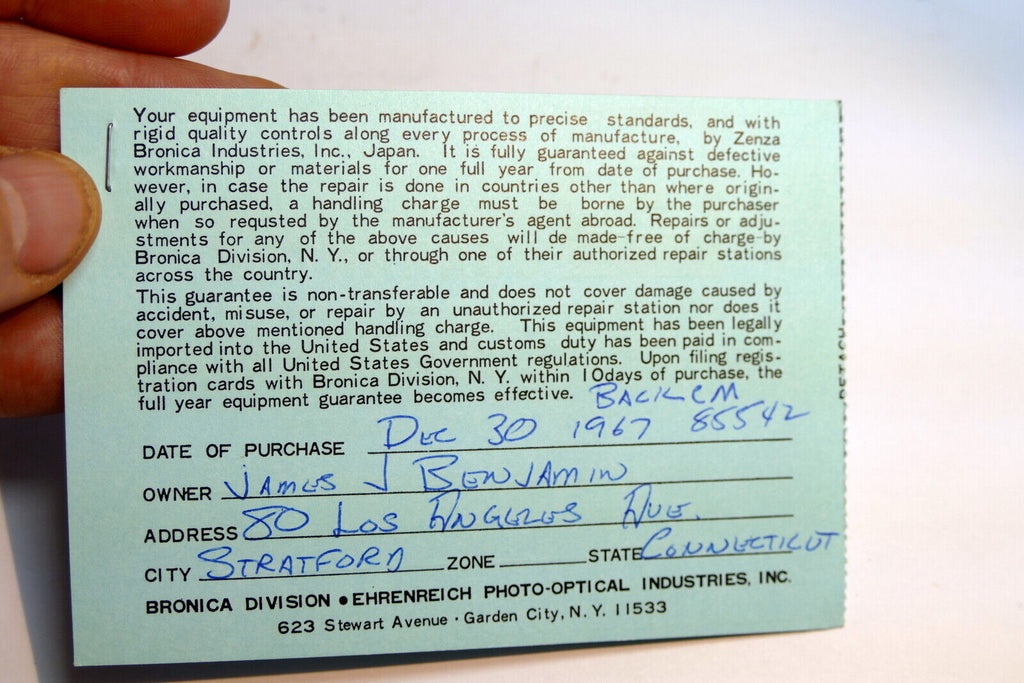 Your equipment has been manufactured to precise standards, and with
rigid quality controls along every process of manufacture, by Zenza
Bronica Industries, Inc., Japan. It is fully guaranteed against defective
workmanship or materials for one full year from date of purchase. Ho-
wever, in case the repair is done in countries other than where origin-
ally purchased, a handling charge must be borne by the purchaser
when so requsted by the manufacturer's agent abroad. Repairs or adju-
stments for any of the above causes will de made free of charge by
Bronica Division, N. Y., or through one of their authorized repair stations
across the country.
This guarantee is non-transferable and does not cover damage caused by
accident, misuse, or repair by an unauthorized repair station nor does it
cover above mentioned handling charge. This equipment has been legally
imported into the United States and customs duty has been paid in com-
pliance with all United States Government regulations. Upon filing regis-
tration cards with Bronica Division, N. Y. within 10days of purchase, the
full year equipment guarantee becomes effective. BACK CM
DATE OF PURCHASE DEC 30 1967 85542
OWNER JAMES J BENJAMIN
ADDRESS 80 LOS ANGELES AVE.
CITY STRATFORD ZONE STATE CONNECTICUT
BRONICA DIVISION • EHRENREICH PHOTO-OPTICAL INDUSTRIES, INC.
623 Stewart Avenue · Garden City, N. Y. 11533